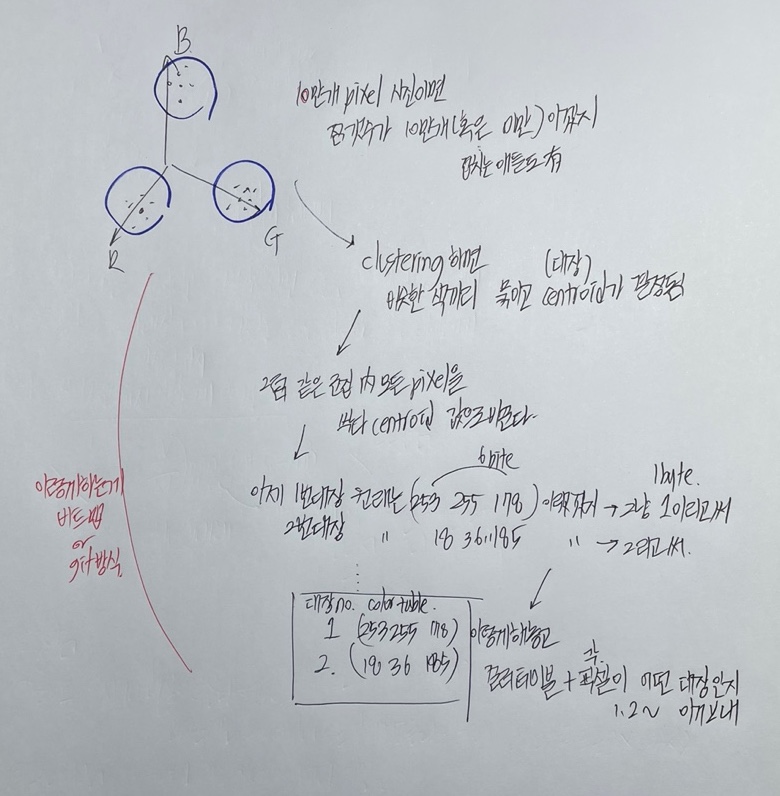 B
R
G
10만개 pixel 사진이면
점 갯수가 10만개(혹은 이만) 이겠지
겹치는 애들도 有
clustering 하면 (대장)
비슷한 색끼리 묶이고 centroid가 판정됨
그럼 같은 군집 內 모든 pixel을
싹다 centroid 값으로 바꾼다.
6bite
1byte.
이제 1번대장 원래는 (253 255 178) 이랬겠지 → 그냥 1이라고 써
2번대장 〃 18 36 185 〃 → 2라고 써.
대장no. color table.
1 (253 255 178)
2. (18 36 185)
이렇게 해놓고
컬러테이블 + 각 픽셀이 어떤 대장인지
1.2~ 이끼 보내
이렇게 하는게
비트맵
or
gif 방식